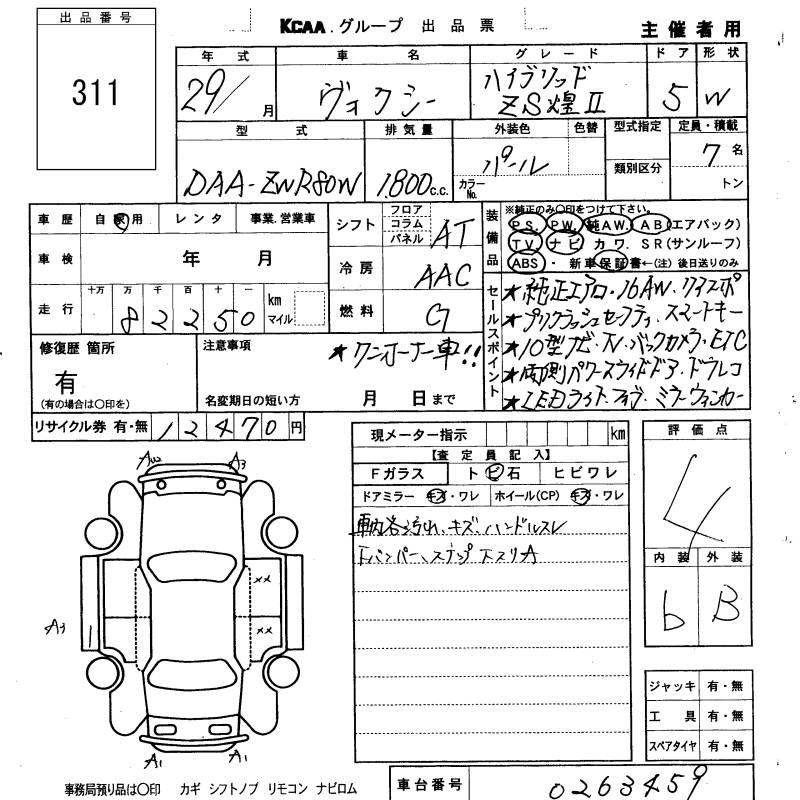 出品番号
311
KCAA.グループ 出品票
主催者用
年式
29/月
車名
ヴォクシー
グレード
ハイブリッド
ZS煌II
ドア
5
形状
W
型式
DAA-ZWR80W
排気量
1,800c.c.
外装色
パール
カラーNo.
色替
型式指定
類別区分
定員・積載
7名
トン
車歴 自家用 レンタ 事業.営業車
車検 年 月
走行 十万 万 千 百 十 一
82250
km
マイル
シフト
フロア
コラム
パネル
AT
冷房 AAC
燃料 G
装備品
※純正のみ○印をつけて下さい。
PS. PW. 純AW. AB(エアバック)
TV. ナビ カワ. SR(サンルーフ)
ABS・新車保証書←(注)後日送りのみ
セールスポイント
★純正エアロ・16AW.
★プリクラッシュセーフティ.スマートキー
★10型ナビ・TV.バックカメラ.ETC
★両側パワースライドドア.ドラレコ
★LEDライト. ミラーウィンカー
修復歴 箇所
有
(有の場合は○印を)
注意事項
★ワンオーナー車!!
名変期日の短い方 月 日まで
リサイクル券 有・無 12470円
現メーター指示 km
【査定員記入】
Fガラス トビ石 ヒビワレ
ドアミラー キズ・ワレ ホイール(CP) キズ・ワレ
車内各汚れ、キズ.ハンドルスレ
Fバンパー、ステップ下スリA
評価点
4
内装 外装
b B
A3
XX
XX
A3
A1 A1
ジャッキ 有・無
工具 有・無
スペアタイヤ 有・無
事務局預り品は○印 カギ シフトノブ リモコン ナビロム
車台番号 0263459